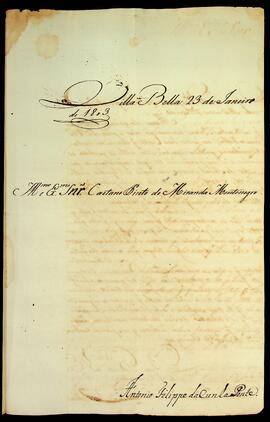 Villa Bella 23 de Janeiro
de 1803
Illmo e Exmo Snr Caetano Pinto de Miranda Montenegro
Antonio Felippe da Cunha Ponte.